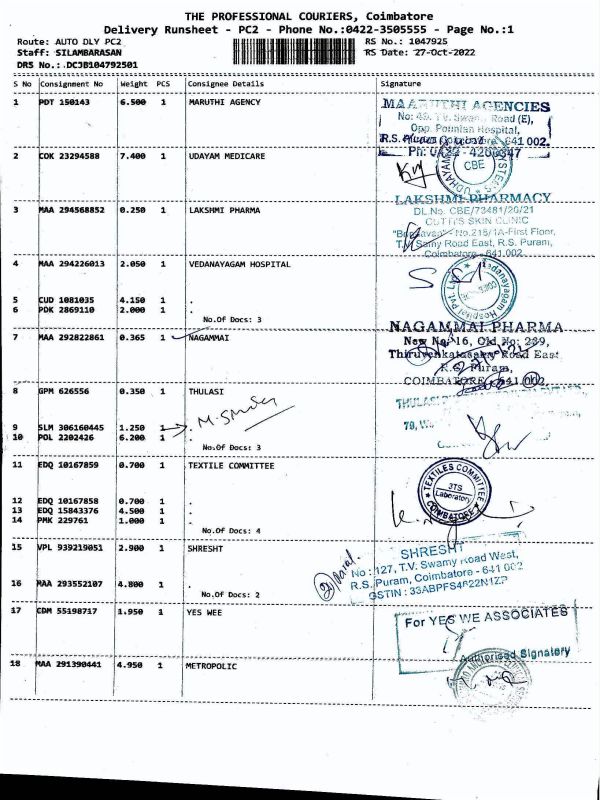 THE PROFESSIONAL COURIERS, Coimbatore
Delivery Runsheet - PC2 - Phone No.:0422-3505555 - Page No.:1
Route: AUTO DLY PC2 RS No.: 1047925
Staff: SILAMBARASAN RS Date: 27-Oct-2022
DRS No.: DCJB104792501
S No Consignment No Weight PCS Consignee Details Signature
1 PDT 150143 6.500 1 MARUTHI AGENCY
MAARUTHI AGENCIES
Road (E),
Opp. Hospital,
R.S. Puram 641 002.
2 COK 23294588 7.400 1 UDAYAM MEDICARE
CBE
3 MAA 294568852 0.250 1 LAKSHMI PHARMA
LAKSHMI PHARMACY
DL.No. CBE/73481/20/21
CUTIS SKIN CLINIC
No.218/1A-First Floor,
Samy Road East, R.S. Puram,
Coimbatore - 641 002
4 MAA 294226013 2.050 1 VEDANAYAGAM HOSPITAL
Vedanayagam Hospital Pvt Ltd
5 CUD 1081035 4.150 1 .
6 PDK 2869110 2.000 1 .
No.Of Docs: 3
7 MAA 292822861 0.365 1 NAGAMMAI
NAGAMMAI PHARMA
New No. 16, Old No: 239,
Thiruvenkatasamy Road East
R.S. Puram,
COIMBATORE - 641 002
8 GPM 626556 0.350 1 THULASI
THULASI
9 SLM 306160445 1.250 1 .
10 POL 2202426 6.200 1 .
No.Of Docs: 3
11 EDQ 10167859 0.700 1 TEXTILE COMMITTEE
TEXTILES COMMITTEE
3TS
Laboratory
COIMBATORE
12 EDQ 10167858 0.700 1 .
13 EDQ 15843376 4.500 1 .
14 PMK 229761 1.000 1 .
No.Of Docs: 4
15 VPL 939219051 2.900 1 SHRESHT
SHRESHT
No : 127, T.V. Swamy Road West,
R.S. Puram, Coimbatore - 641 002
GSTIN : 33ABPFS4622N1ZP
16 MAA 293552107 4.800 1 .
No.Of Docs: 2
17 CDM 55198717 1.950 1 YES WEE
For YES WE ASSOCIATES
Authorised Signatory
18 MAA 291390441 4.950 1 METROPOLIC